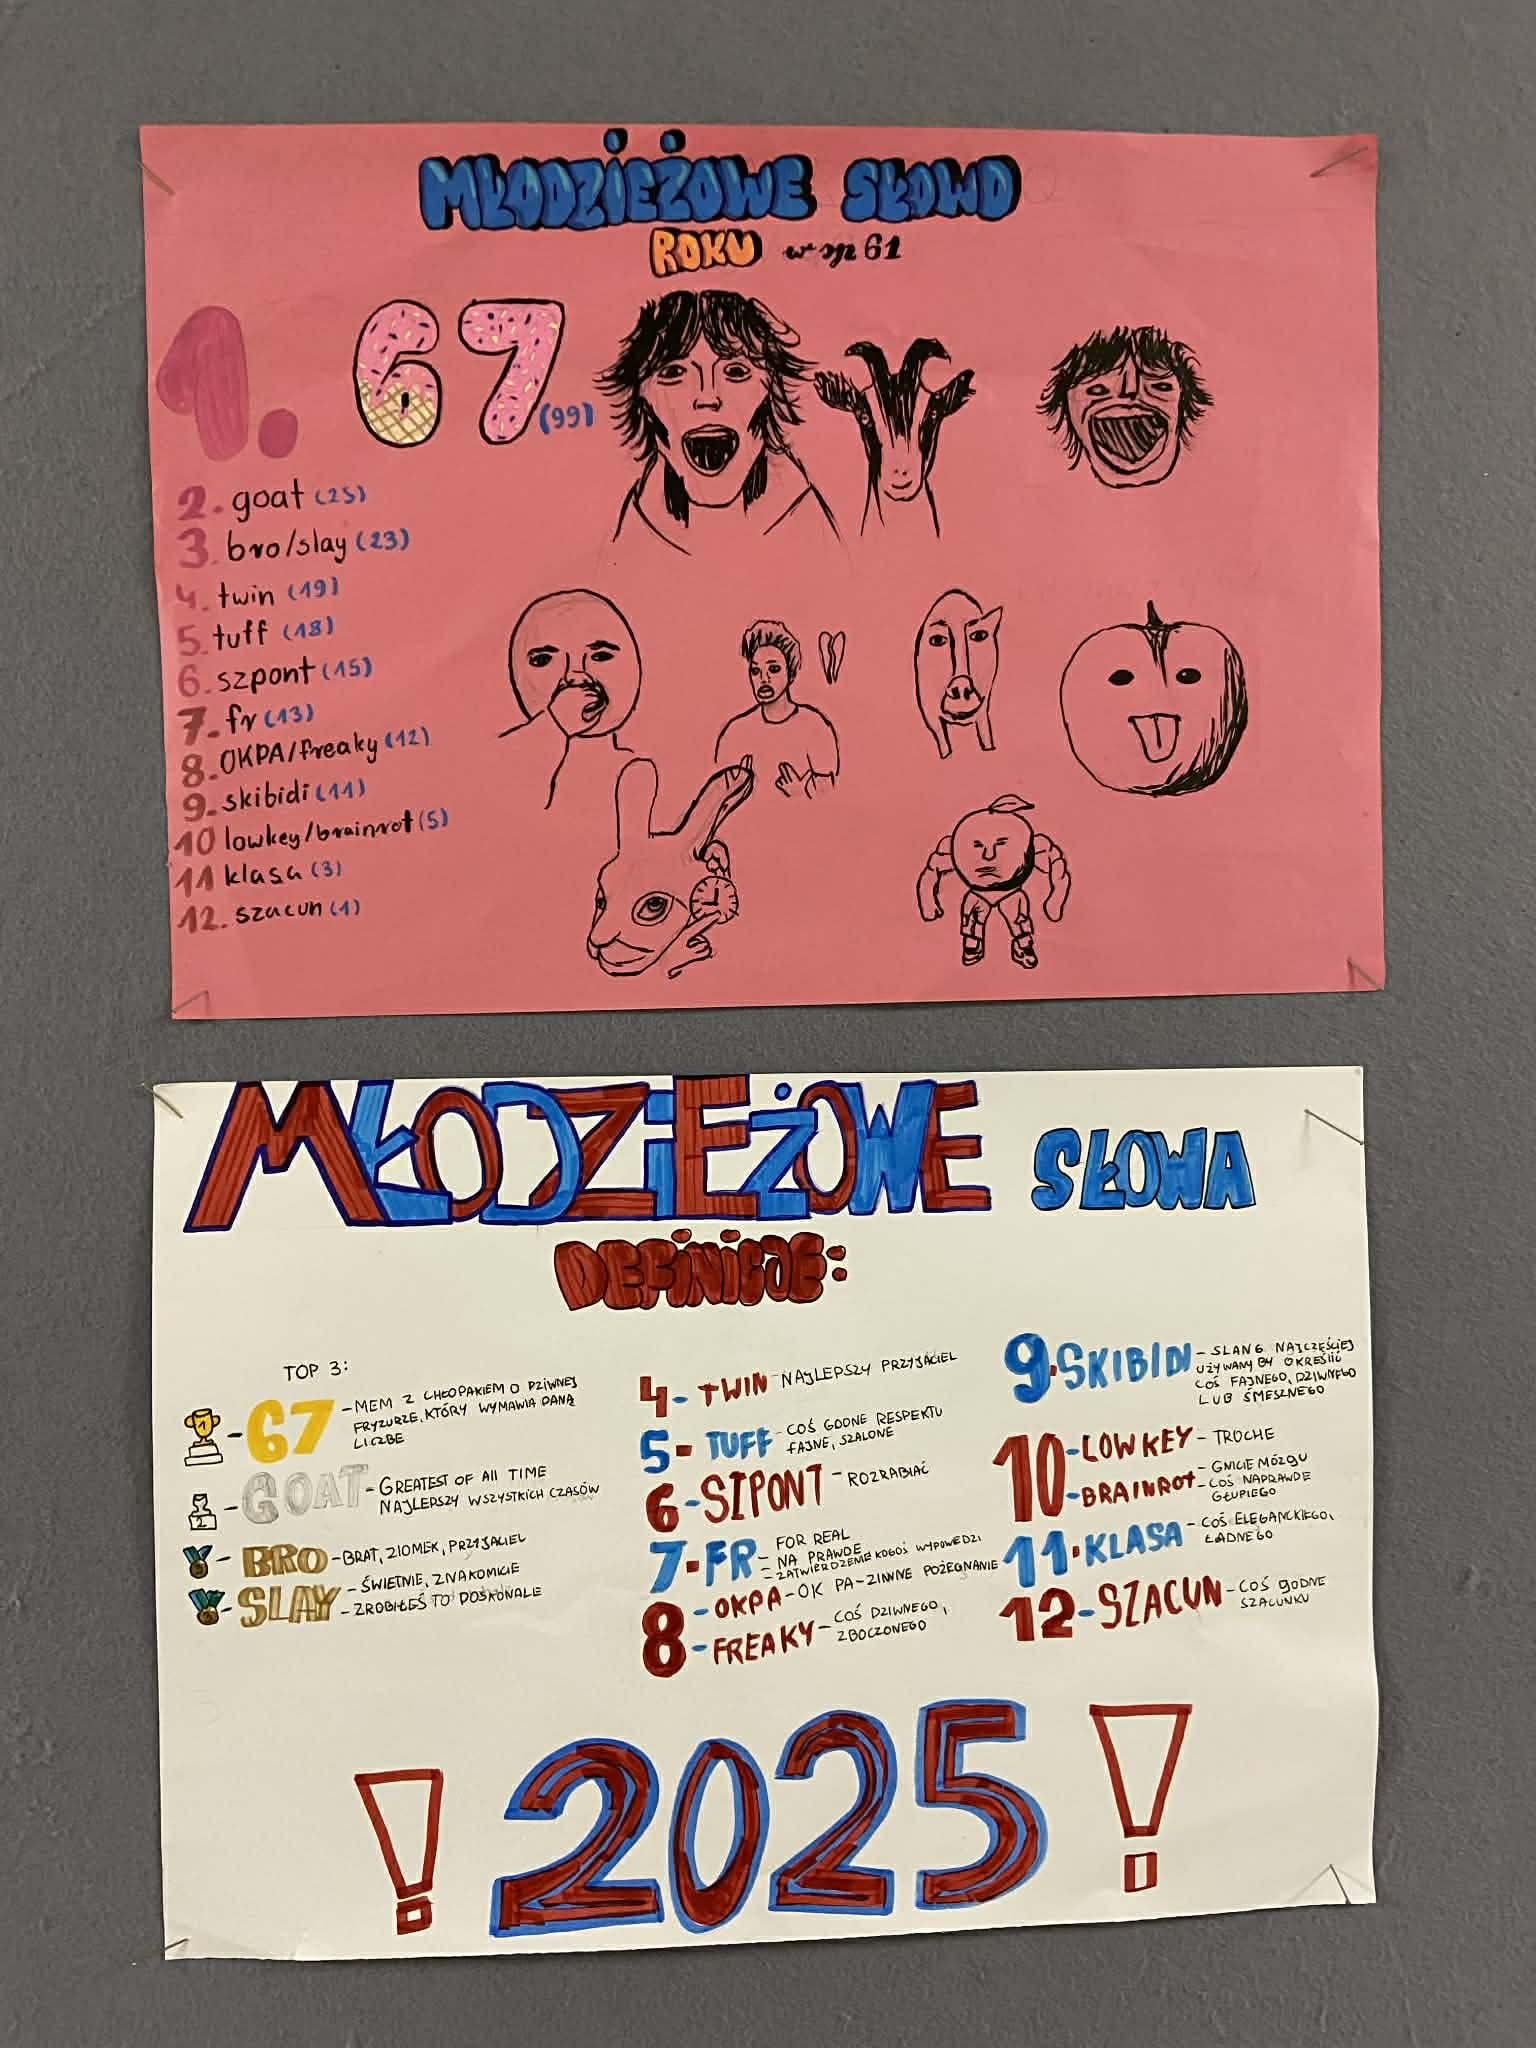 MŁODZIEŻOWE SŁOWO
ROKU w sp 61
1. 67 (99)
2. goat (25)
3. bro/slay (23)
4. twin (19)
5. tuff (18)
6. szpont (15)
7. fr (13)
8. OKPA/freaky (12)
9. skibidi (11)
10 lowkey/brainrot (5)
11 klasa (3)
12. szacun (1)
MŁODZIEŻOWE SŁOWA
DEFINICJE:
TOP 3:
1 - 67 - MEM Z CHŁOPAKIEM O DZIWNEJ
FRYZURZE, KTÓRY WYMAWIA DANĄ
LICZBE
2 - GOAT - GREATEST OF All TIME
NAJLEPSZY WSZYSTKICH CZASÓW
3 - BRO - BRAT, ZIOMEK, PRZYJACIEL
3 - SLAY - ŚWIETNIE, ZNAKOMICIE
- ZROBIŁEŚ TO DOSKONALE
4 - TWIN - NAJLEPSZY PRZYJACIEL
5 - TUFF - COŚ GODNE RESPEKTU
FAJNE, SZALONE
6 - SZPONT - ROZRABIAĆ
7 - FR - FOR REAL
- NA PRAWDE
- ZATWIERDZENIE KOGOŚ WYPOWEDZI
8 - OKPA - OK PA - ZIMNE POŻEGNANIE
- FREAKY - COŚ DZIWNEGO,
ZBOCZONEGO
9. SKIBIDI - SLANG NAJCZĘŚCIEJ
UŻYWANY BY OKREŚLIĆ
COŚ FAJNEGO, DZIWNEGO
LUB ŚMIESZNEGO
10 - LOWKEY - TROCHE
- BRAINROT - GNICIE MÓZGU
- COŚ NAPRAWDE
GŁUPIEGO
11. KLASA - COŚ ELEGANCKIEGO,
ŁADNEGO
12 - SZACUN - COŚ GODNE
SZACUNKU
! 2025 !